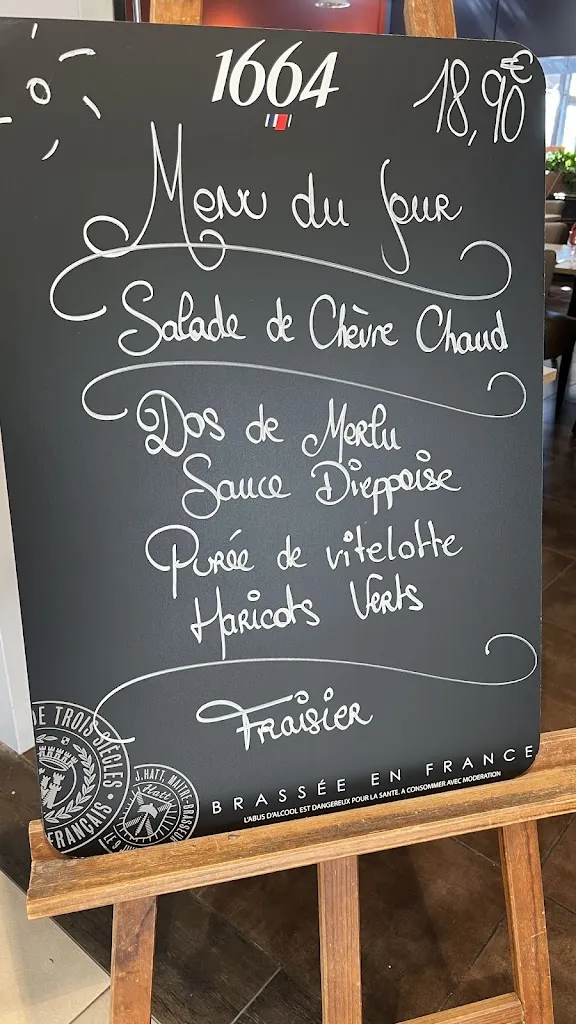 1664
18,90€
Menu du Jour
Salade de Chèvre Chaud
Dos de Merlu
Sauce Dieppoise
Purée de vitelotte
Haricots Verts
Fraisier
DE TROIS SIÈCLES
FRANÇAIS
J. HATT, MAÎTRE-BRASSEUR
Hatt
LE 9
BRASSÉE EN FRANCE
L'ABUS D'ALCOOL EST DANGEREUX POUR LA SANTE. A CONSOMMER AVEC MODERATION